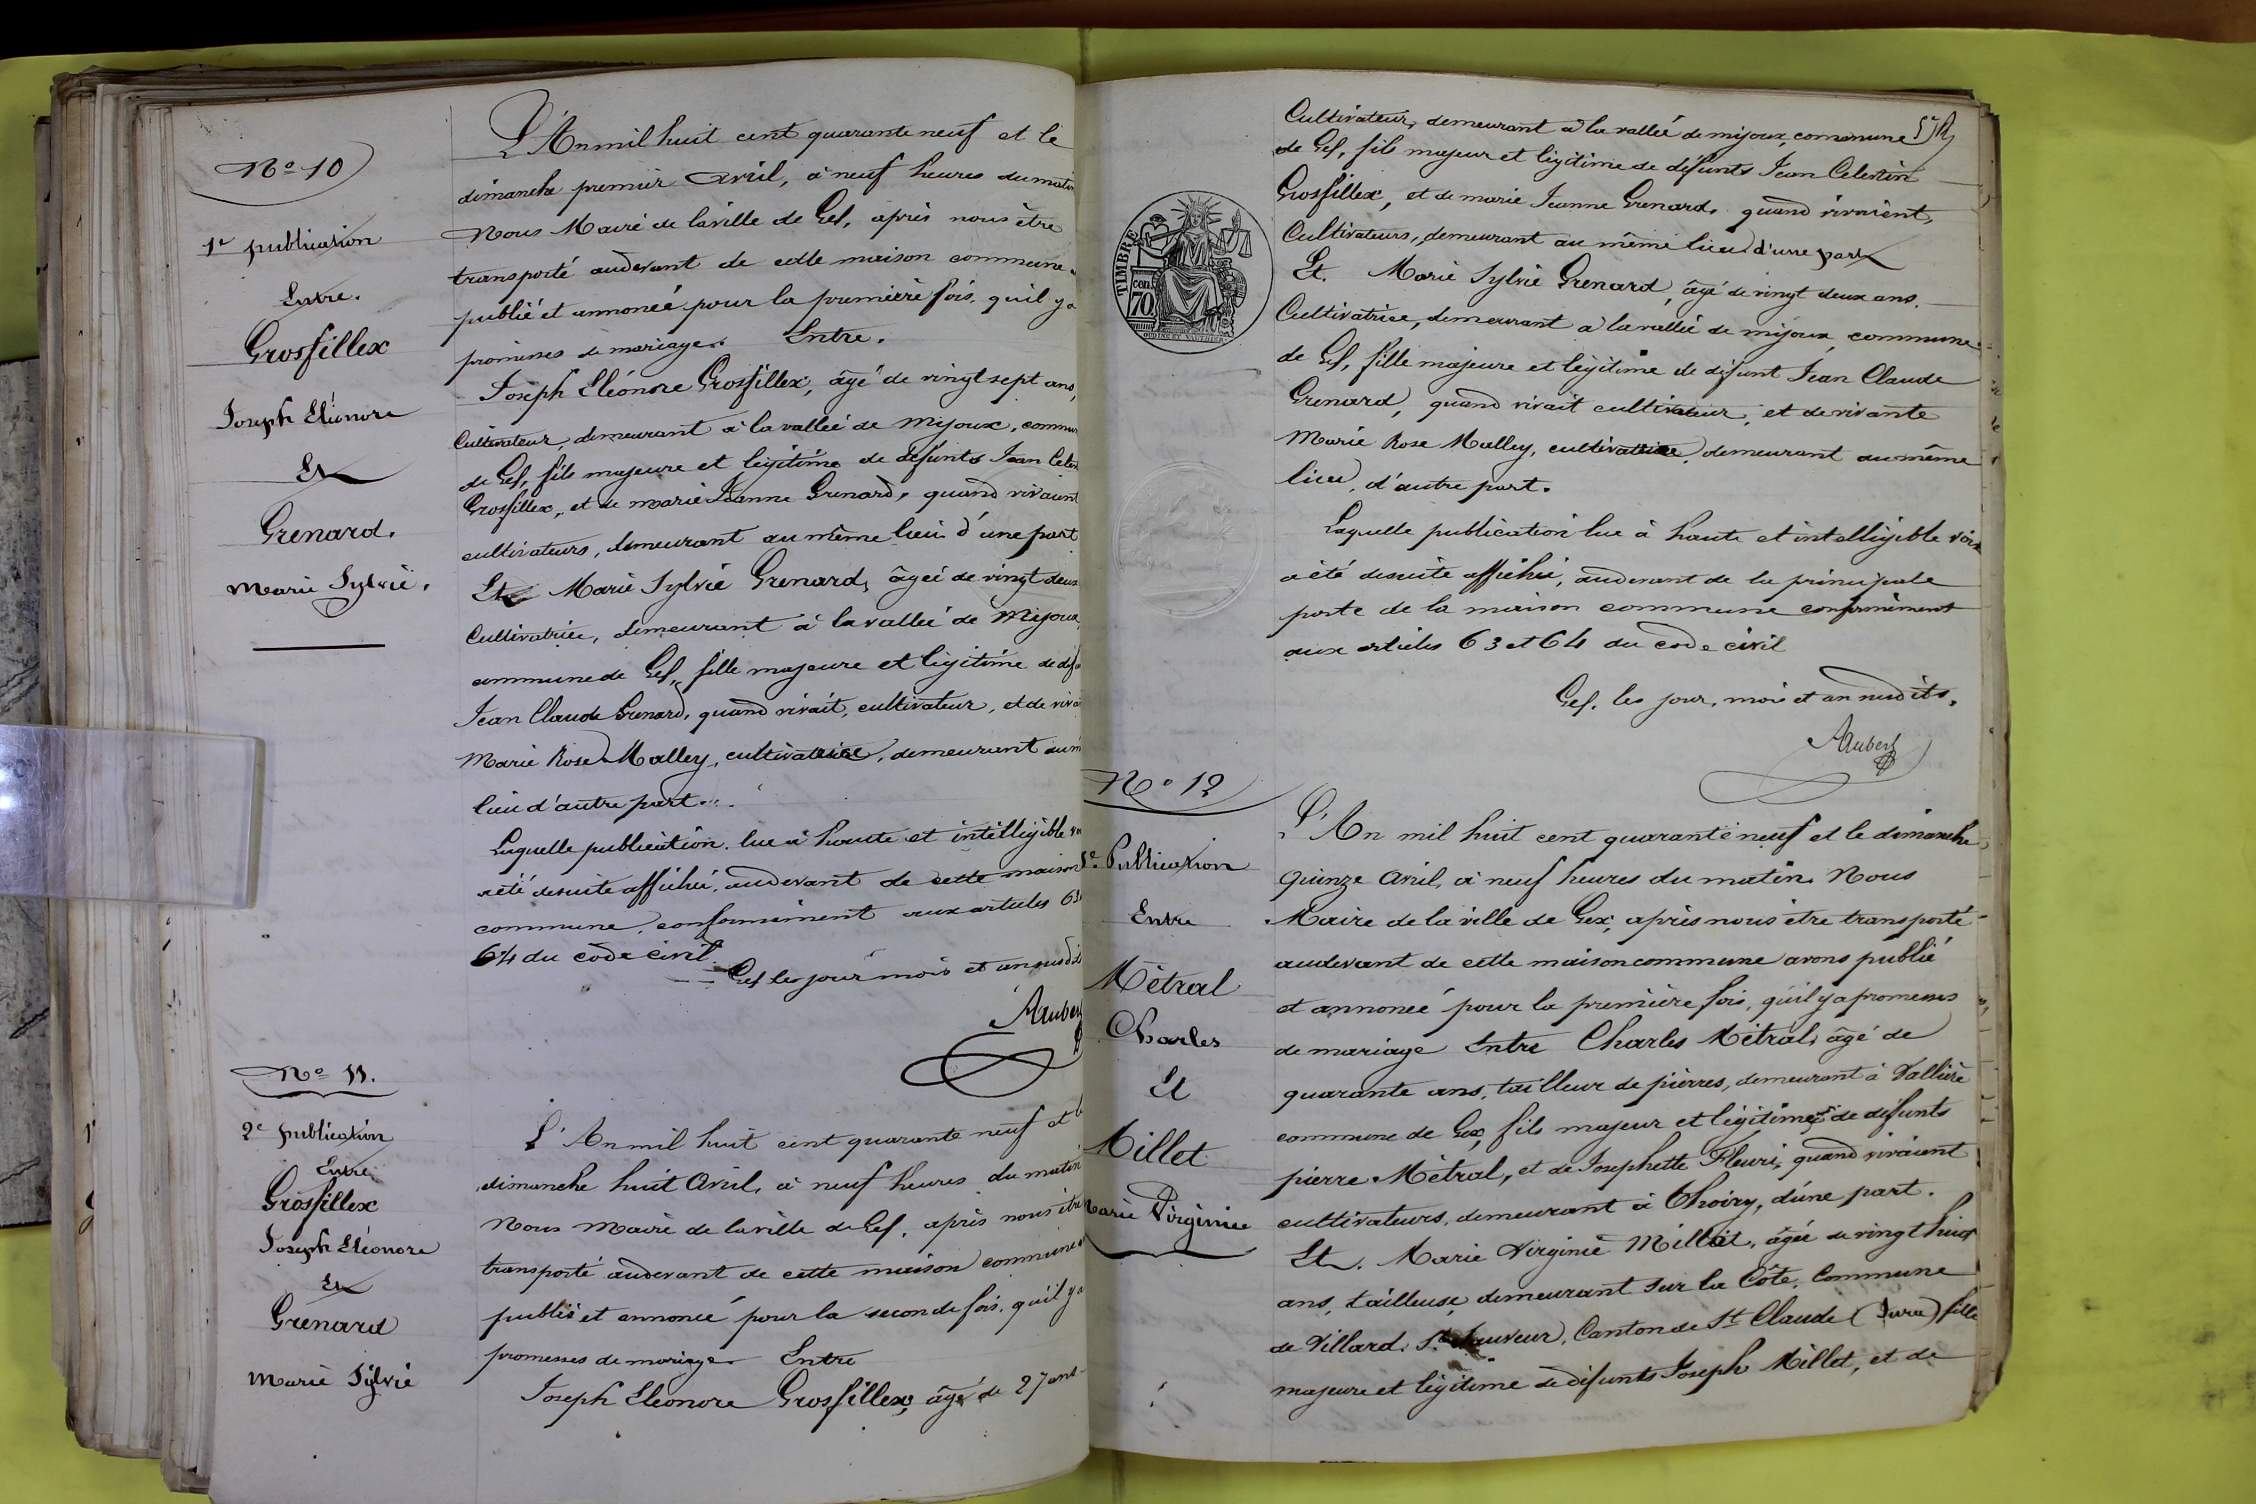 No 10
1re publication
Entre.
Grosfillex
Joseph Eléonore
Et
Grenard.
Marie Sylvie.
L'An mil huit cent quarante neuf et le
dimanche premier avril, à neuf heures du matin
Nous Maire de la ville de Gex, après nous être
transporté audevant de cette maison commune
publié et annoncé pour la première fois, qu'il y a
promesses de mariage. Entre.
Joseph Eléonore Grosfillex, âgé de vingt sept ans,
Cultivateur, demeurant à la vallée de Mijoux, commun
de Gex, fils majeure et légitime de défunts Jean Celes
Grosfillex, et de marie Jeanne Grenard, quand vivaient
cultivateurs, demeurant au même lieu d'une part
Et Marie Sylvie Grenard, âgée de vingt deux
Cultivatrice, demeurant à la vallée de Mijoux,
commune de Gex, fille majeure et légitime de déf
Jean Claude Grenard, quand vivait, cultivateur, et de viva
Marie Rose Malley, cultivatrice, demeurant au m
lieu d'autre part.
Laquelle publication lue à haute et intelligible vo
a été desuite affichée, audevant de cette maison
commune, conformément aux articles 63
64 du code civil.
Gex les jour mois et an susdits
Aubert
No 11.
2e publication
Entre
Grosfillex
Joseph Eléonore
Et
Grenard
Marie Sylvie
L'An mil huit cent quarante neuf et l
dimanche huit Avril, à neuf heures du matin
Nous maire de la ville de Gex, après nous être
transporté audevant de cette maison commune
publié et annoncé pour la seconde fois, qu'il y a
promesses de mariage. Entre
Joseph Eléonore Grosfillex, âgé de 27 ans
Cultivateur, demeurant à la vallée de mijoux, commune
de Gex, fils majeur et légitime de défunts Jean Celestin
Grosfillex, et de marie Jeanne Grenard, quand vivaient,
Cultivateurs, demeurant au même lieu d'une part
Et. Marie Sylvie Grenard, âgé de vingt deux ans.
Cultivatrice, demeurant à la vallée de mijoux, commune
de Gex, fille majeure et légitime de défunt Jean Claude
Grenard, quand vivait cultivateur, et de vivante
Marie Rose Malley, cultivatrice, demeurant au même
lieu, d'autre part.
Laquelle publication lue à haute et intelligible voix
a été desuite affichée, audevant de la principale
porte de la maison commune conformément
aux articles 63 et 64 du code civil
Gex, les jour, mois et an susdits.
Aubert
TIMBRE
70
No 12
1e Publication
Entre
Métral
Charles
Et
Millet
Marie Virginie
L'An mil huit cent quarante neuf et le dimanche
quinze avril, à neuf heures du matin. Nous
Maire de la ville de Gex, après nous être transporté
audevant de cette maison commune avons publié
et annoncé pour la première fois, qu'il y a promesses
de mariage Entre Charles Métral, âgé de
quarante ans, tailleur de pierres, demeurant à Vallière
commune de Gex, fils majeur et légitime de défunts
pierre Métral, et de Josephette Fleuri, quand vivaient
cultivateurs, demeurant à Thoiry, d'une part.
Et. Marie Virginie Millet, âgée de vingt huit
ans, tailleuse demeurant sur la Côte, Commune
de Villard St Sauveur, Canton de St Claude (Jura) fille
majeure et légitime de défunts Joseph Millet, et de